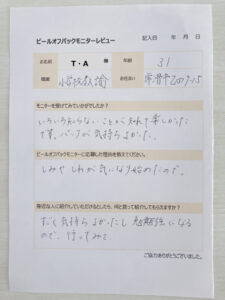 ピールオフパックモニターレビュー
記入日 年 月 日
お名前 T・A 様 年齢 31
職業 小学校教諭 お住まい
モニターを受けてみていかがでしたか？
いろいろ知らないことが知れて楽しかった
です。パックが気持ちよかった。
ピールオフパックモニターに応募した理由を教えてください。
しみやしわが気になり始めたので。
身近な人に紹介していただけるとしたら、何と言って紹介してもらえますか？
すごく気持ちよかったし勉強になる
ので、行ってみて
ご協力ありがとうございました。